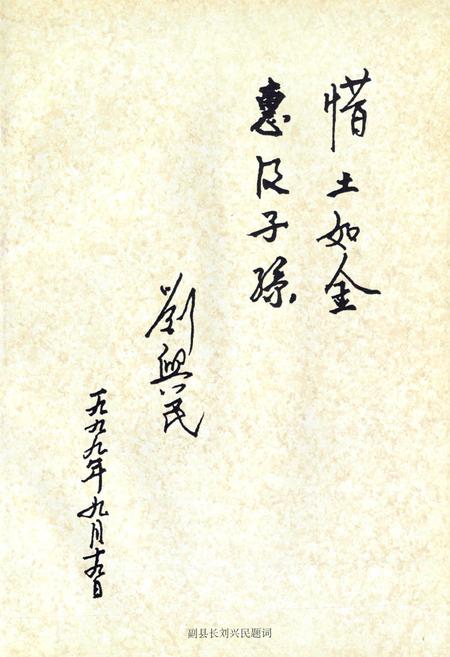 惜土如金
惠及子孫
劉興民
一九九九年九月十九日
副县长刘兴民题词